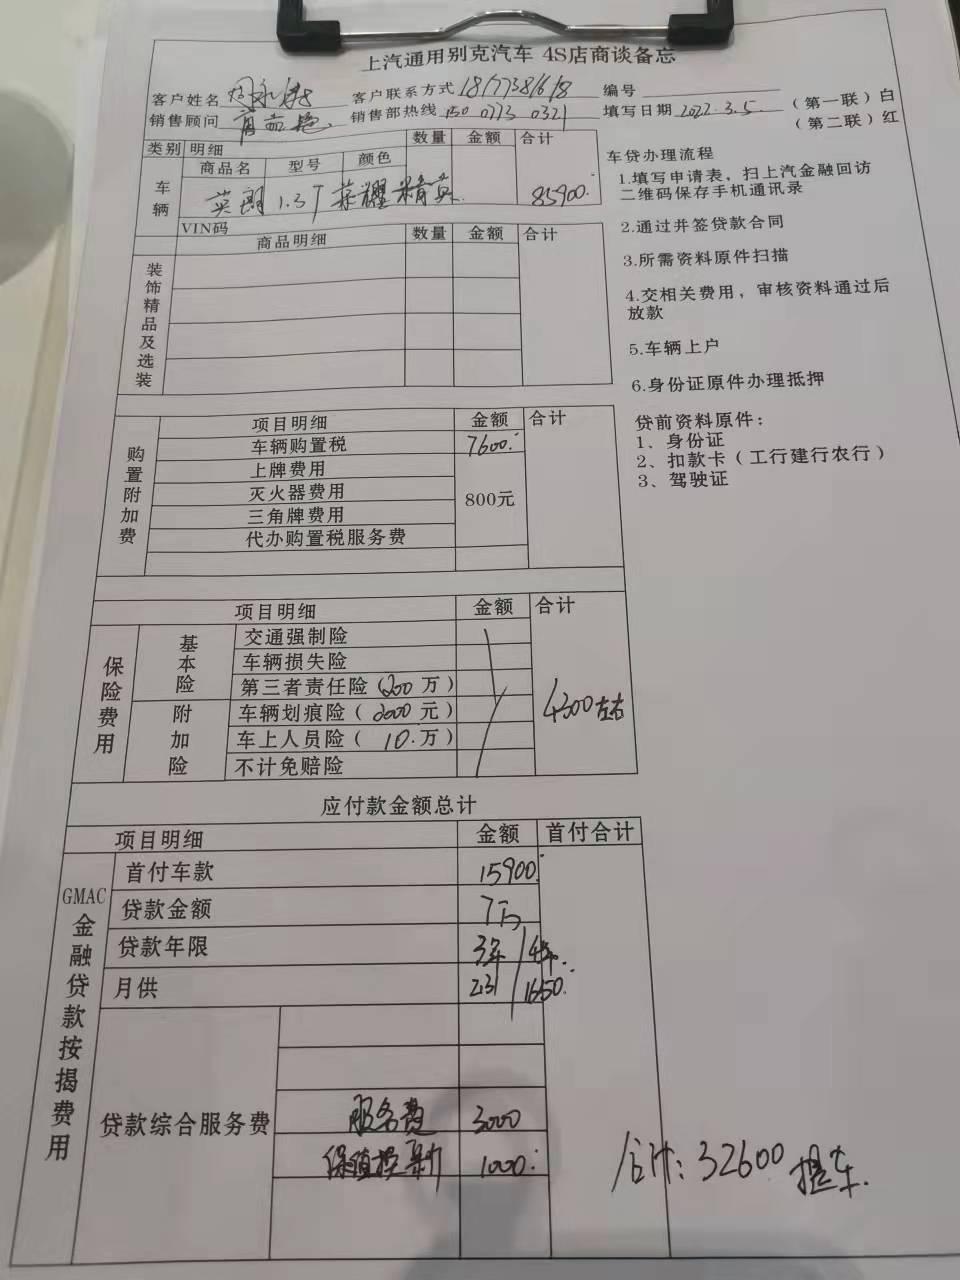 上汽通用别克汽车 4S店商谈备忘
客户姓名 客户联系方式 18177381618 编号
销售顾问 销售部热线 150 0773 0321 填写日期 2022.3.5.
（第一联）白
（第二联）红
类别 明细 数量 金额 合计
商品名 型号 颜色
车辆 英朗 1.3T 荣耀 精英. 85900.
VIN码
商品明细 数量 金额 合计
装饰精品及选装
车贷办理流程
1.填写申请表，扫上汽金融回访
二维码保存手机通讯录
2.通过并签贷款合同
3.所需资料原件扫描
4.交相关费用，审核资料通过后
放款
5.车辆上户
6.身份证原件办理抵押
贷前资料原件：
1、身份证
2、扣款卡（工行建行农行）
3、驾驶证
购置附加费
项目明细 金额 合计
车辆购置税 7600.
上牌费用
灭火器费用 800元
三角牌费用
代办购置税服务费
保险费用
项目明细 金额 合计
基本险 交通强制险
车辆损失险
第三者责任险（200万）
附加险 车辆划痕险（2000元） 4300左右
车上人员险（10.万）
不计免赔险
应付款金额总计
项目明细 金额 首付合计
GMAC金融贷款按揭费用
首付车款 15900.
贷款金额 7万
贷款年限 3年/4年.
月供 2131/1650.
贷款综合服务费
服务费 3000
保值换新 1000.
合计：32600 提车.